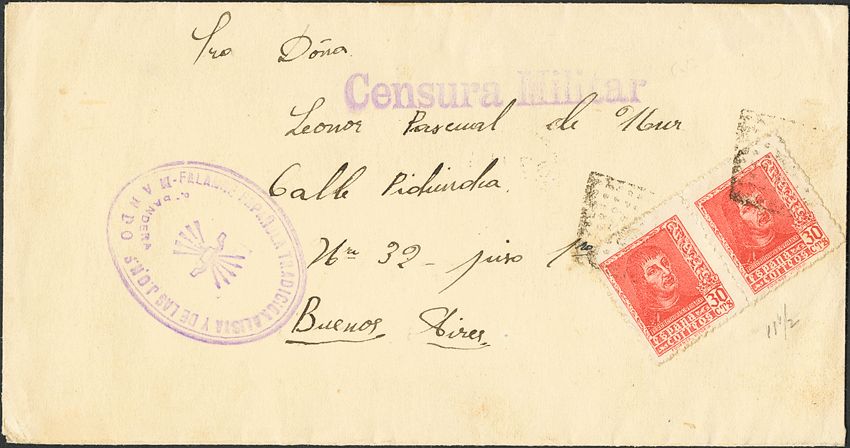 Sra Dóna
Censura Militar
Leonor Pascual de Mur
Calle Pichincha
Nro 32 - piso 1ro
Buenos Aires
FALANGE ESPAÑOLA TRADICIONALISTA Y DE LAS J.O.N.S.
BANDERA
MANDO
30
CTS
ESPAÑA
CORREOS
30
CTS
ESPAÑA
CORREOS
11 1/2